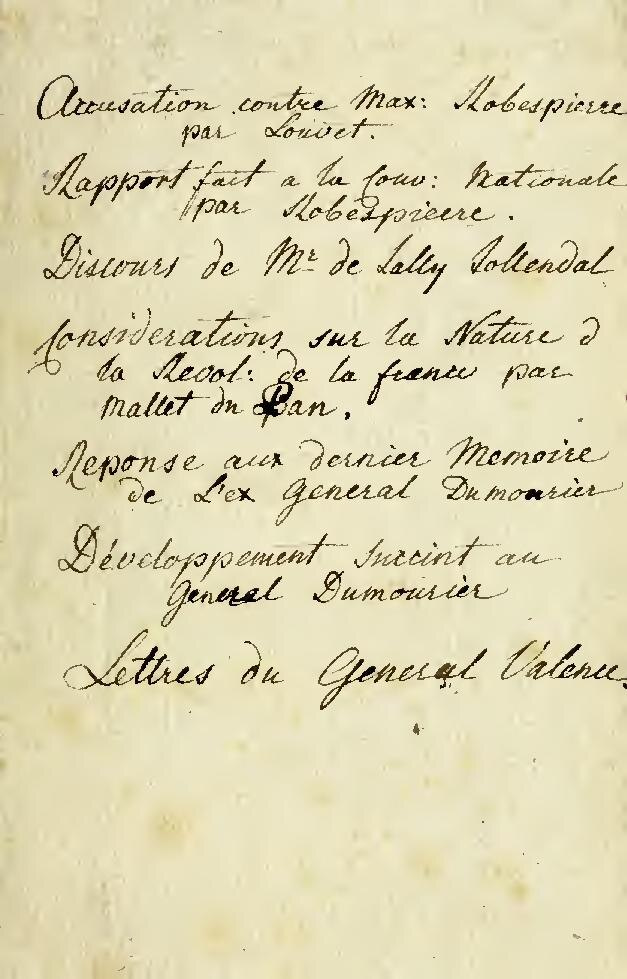 Accusation contre Max: Robespierre
par Louvet.
Rapport fait a la Conv: Nationale
par Robespierre.
Discours de Mr de Lally Tollendal
Considerations sur la Nature d
la Revol: de la france par
Mallet du Pan.
Reponse aux dernier Memoire
de L'ex General Dumourier
Développement succint au
General Dumourier
Lettres du General Valence.